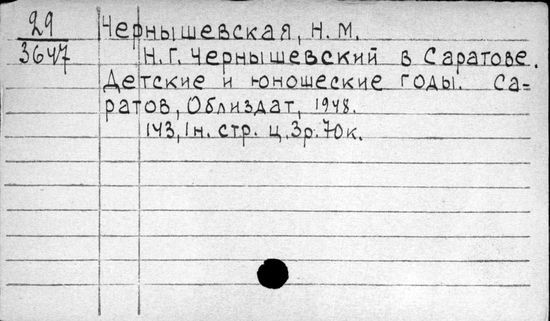 29 Чернышевская, Н. М.
3647 Н. Г. Чернышевский в Саратове.
Детские и юношеские годы. Са-
ратов, Облиздат, 1948.
143, 1н. стр. ц. 3р. 70к.